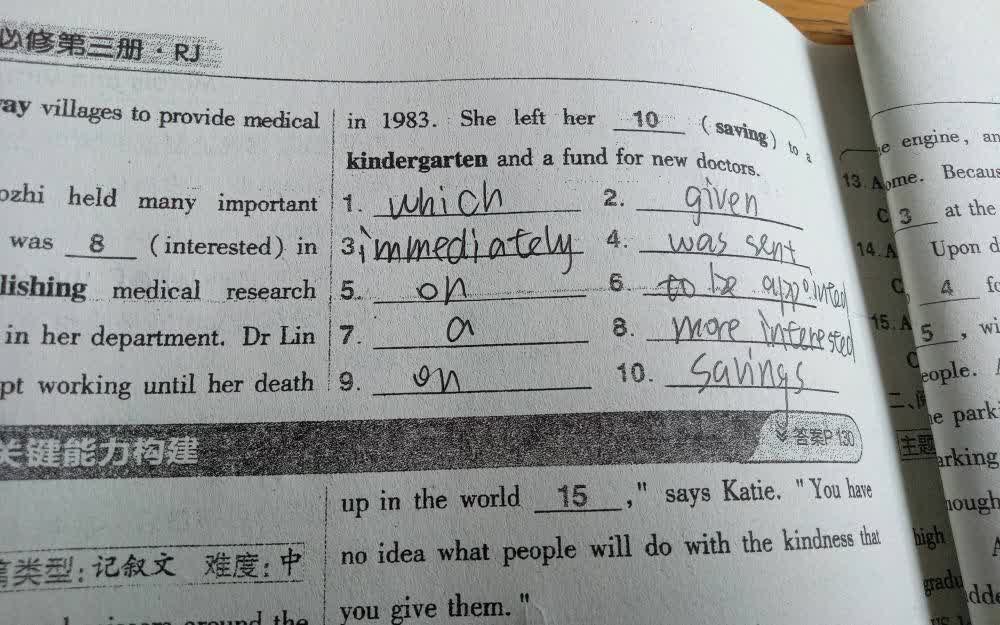 必修第三册·RJ
way villages to provide medical
ozhi held many important
was 8 (interested) in
lishing medical research
in her department. Dr Lin
pt working until her death
in 1983. She left her 10 (saving) to a
kindergarten and a fund for new doctors.
1. which 2. given
3. immediately 4. was sent
5. on 6. to be appointed
7. a 8. more interested
9. on 10. savings
关键能力构建
答案P 130
篇类型:记叙文 难度:中
around the
up in the world 15 ," says Katie. "You have
no idea what people will do with the kindness that
you give them."
13. A
C
14. A
C
15. A
C
二、
主题
high
engine, an
ome. Becaus
3 at the
Upon d
4 fo
5 , wi
eople.
e park
arking
hough